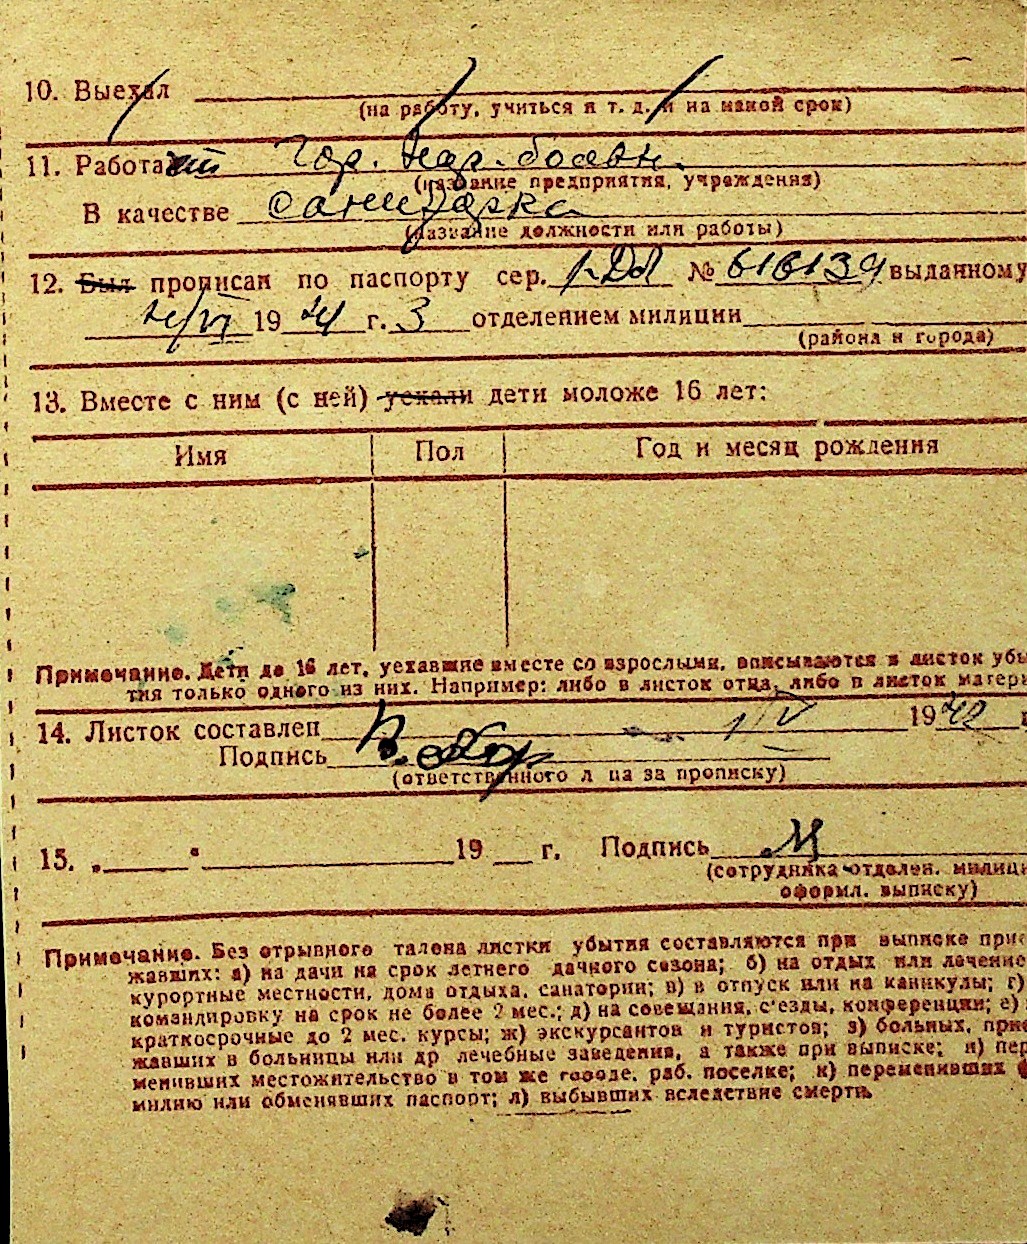 10. Выехал
(на работу, учиться и т. д. и на какой срок)
11. Работает Гор.
(название предприятия, учреждения)
В качестве санитарка
(название должности или работы)
12. Был прописан по паспорту сер. № 616139 выданному
19 г. 3 отделением милиции
(района и города)
13. Вместе с ним (с ней) уехали дети моложе 16 лет:
Имя Пол Год и месяц рождения
Примечание. Дети до 16 лет, уехавшие вместе со взрослыми, вписываются в листок убы
тия только одного из них. Например: либо в листок отца, либо в листок матери
14. Листок составлен 1/V 1942 г
Подпись
(ответственного л ца за прописку)
15. „ “ 19 г. Подпись
(сотрудника отделен. милици
оформл. выписку)
Примечание. Без отрывного талона листки убытия составляются при выписке прие
жавших: а) на дачи на срок летнего дачного сезона; б) на отдых или лечение
курортные местности, дома отдыха, санатории; в) в отпуск или на каникулы; г)
командировку на срок не более 2 мес.; д) на совещания, с'езды, конференции; е)
краткосрочные до 2 мес. курсы; ж) экскурсантов и туристов; з) больных, прие
жавших в больницы или др лечебные заведения, а также при выписке; и) пер
менивших местожительство в том же городе, раб. поселке; к) переменивших ф
милию или обменявших паспорт; л) выбывших вследствие смерти.